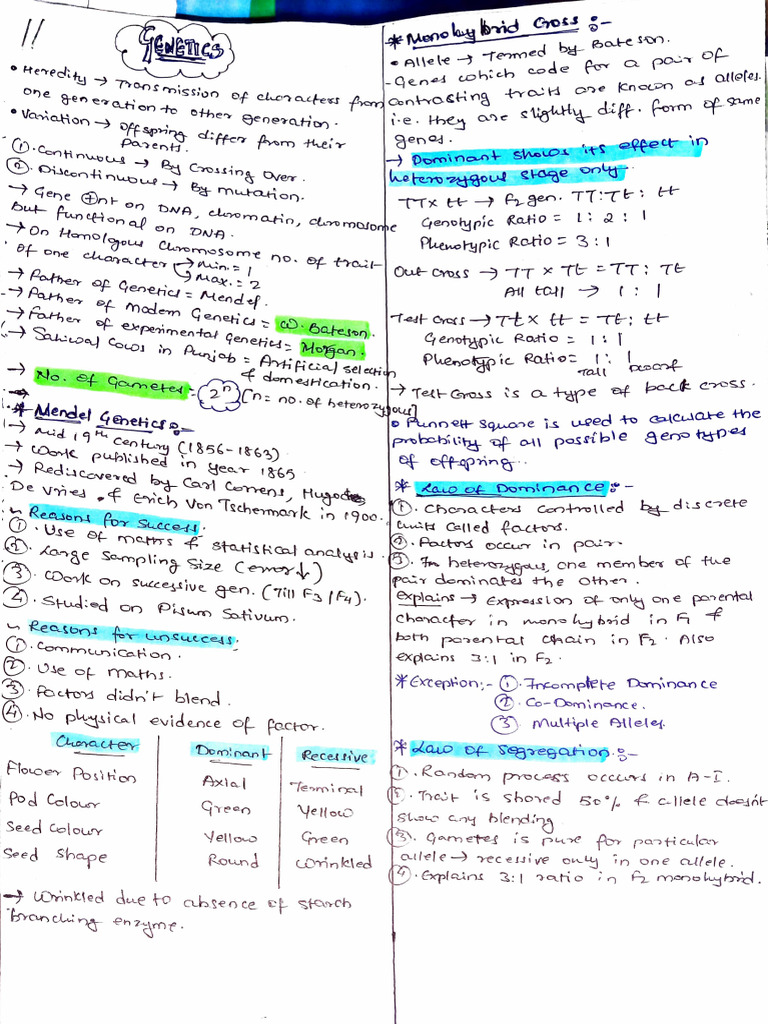 11
GENETICS
• Heredity → Transmission of characters from
one generation to other generation.
• Variation → offspring differ from their
parents.
① Continuous → By Crossing over.
② Discontinuous → By mutation.
→ Gene ⊕nt on DNA, chromatin, chromosome
But functional on DNA.
→ On Homologous chromosome no. of trait
of one character → Min. = 1
→ Max. = 2
→ Father of Genetics = Mendel.
→ Father of Modern Genetics = W. Bateson.
→ Father of experimental Genetics = Morgan.
→ Sahiwal Cows in Punjab = Artificial selection
& domestication.
→ No. of Gametes = 2ⁿ [n = no. of heterozygous]
* Mendel Genetics :-
→ Mid 19th century (1856-1863)
→ Work published in year 1865
→ Rediscovered by Carl Correns, Hugode
De vries & Erich Von Tschermark in 1900.
Reasons for success.
① Use of maths & statistical analysis.
② Large Sampling Size (error↓)
③ Work on successive gen. (Till F3/F4).
④ Studied on Pisum Sativum.
Reasons for unsuccess:
① Communication.
② Use of maths.
③ Factors didn't blend.
④ No physical evidence of factor.
Character Dominant Recessive
Flower Position Axial Terminal
Pod Colour Green Yellow
Seed Colour Yellow Green
Seed Shape Round Wrinkled
→ Wrinkled due to absence of starch
branching enzyme.
* Monohybrid Cross :-
• Allele → Termed by Bateson.
- Genes which code for a pair of
contrasting traits are known as alleles.
i.e. they are slightly diff. form of same
genes.
→ Dominant shows its effect in
heterozygous stage only.
TT x tt → F2 gen. TT : Tt : tt
Genotypic Ratio = 1 : 2 : 1
Phenotypic Ratio = 3 : 1
Out Cross → TT x Tt = TT : Tt
All tall → 1 : 1
Test Cross → Tt x tt = Tt : tt
Genotypic Ratio = 1 : 1
Phenotypic Ratio = 1 : 1
Tall dwarf
→ Test Cross is a type of back cross.
• Punnett Square is used to calculate the
probability of all possible genotypes
of offspring.
* Law of Dominance :-
① Characters controlled by discrete
units called factors.
② Factors occur in pair.
③ In heterozygous, one member of the
pair dominates the other.
Explains → Expression of only one parental
character in monohybrid in F1 &
both parental chain in F2. Also
explains 3:1 in F2.
* Exception:- ① Incomplete Dominance
② Co-Dominance.
③ Multiple Alleles.
* Law of Segregation :-
① Random process occurs in A-I.
② Trait is shored 50% & allele doesn't
show any blending
③ Gametes is pure for particular
allele → recessive only in one allele.
④ Explains 3:1 ratio in F2 monohybrid.